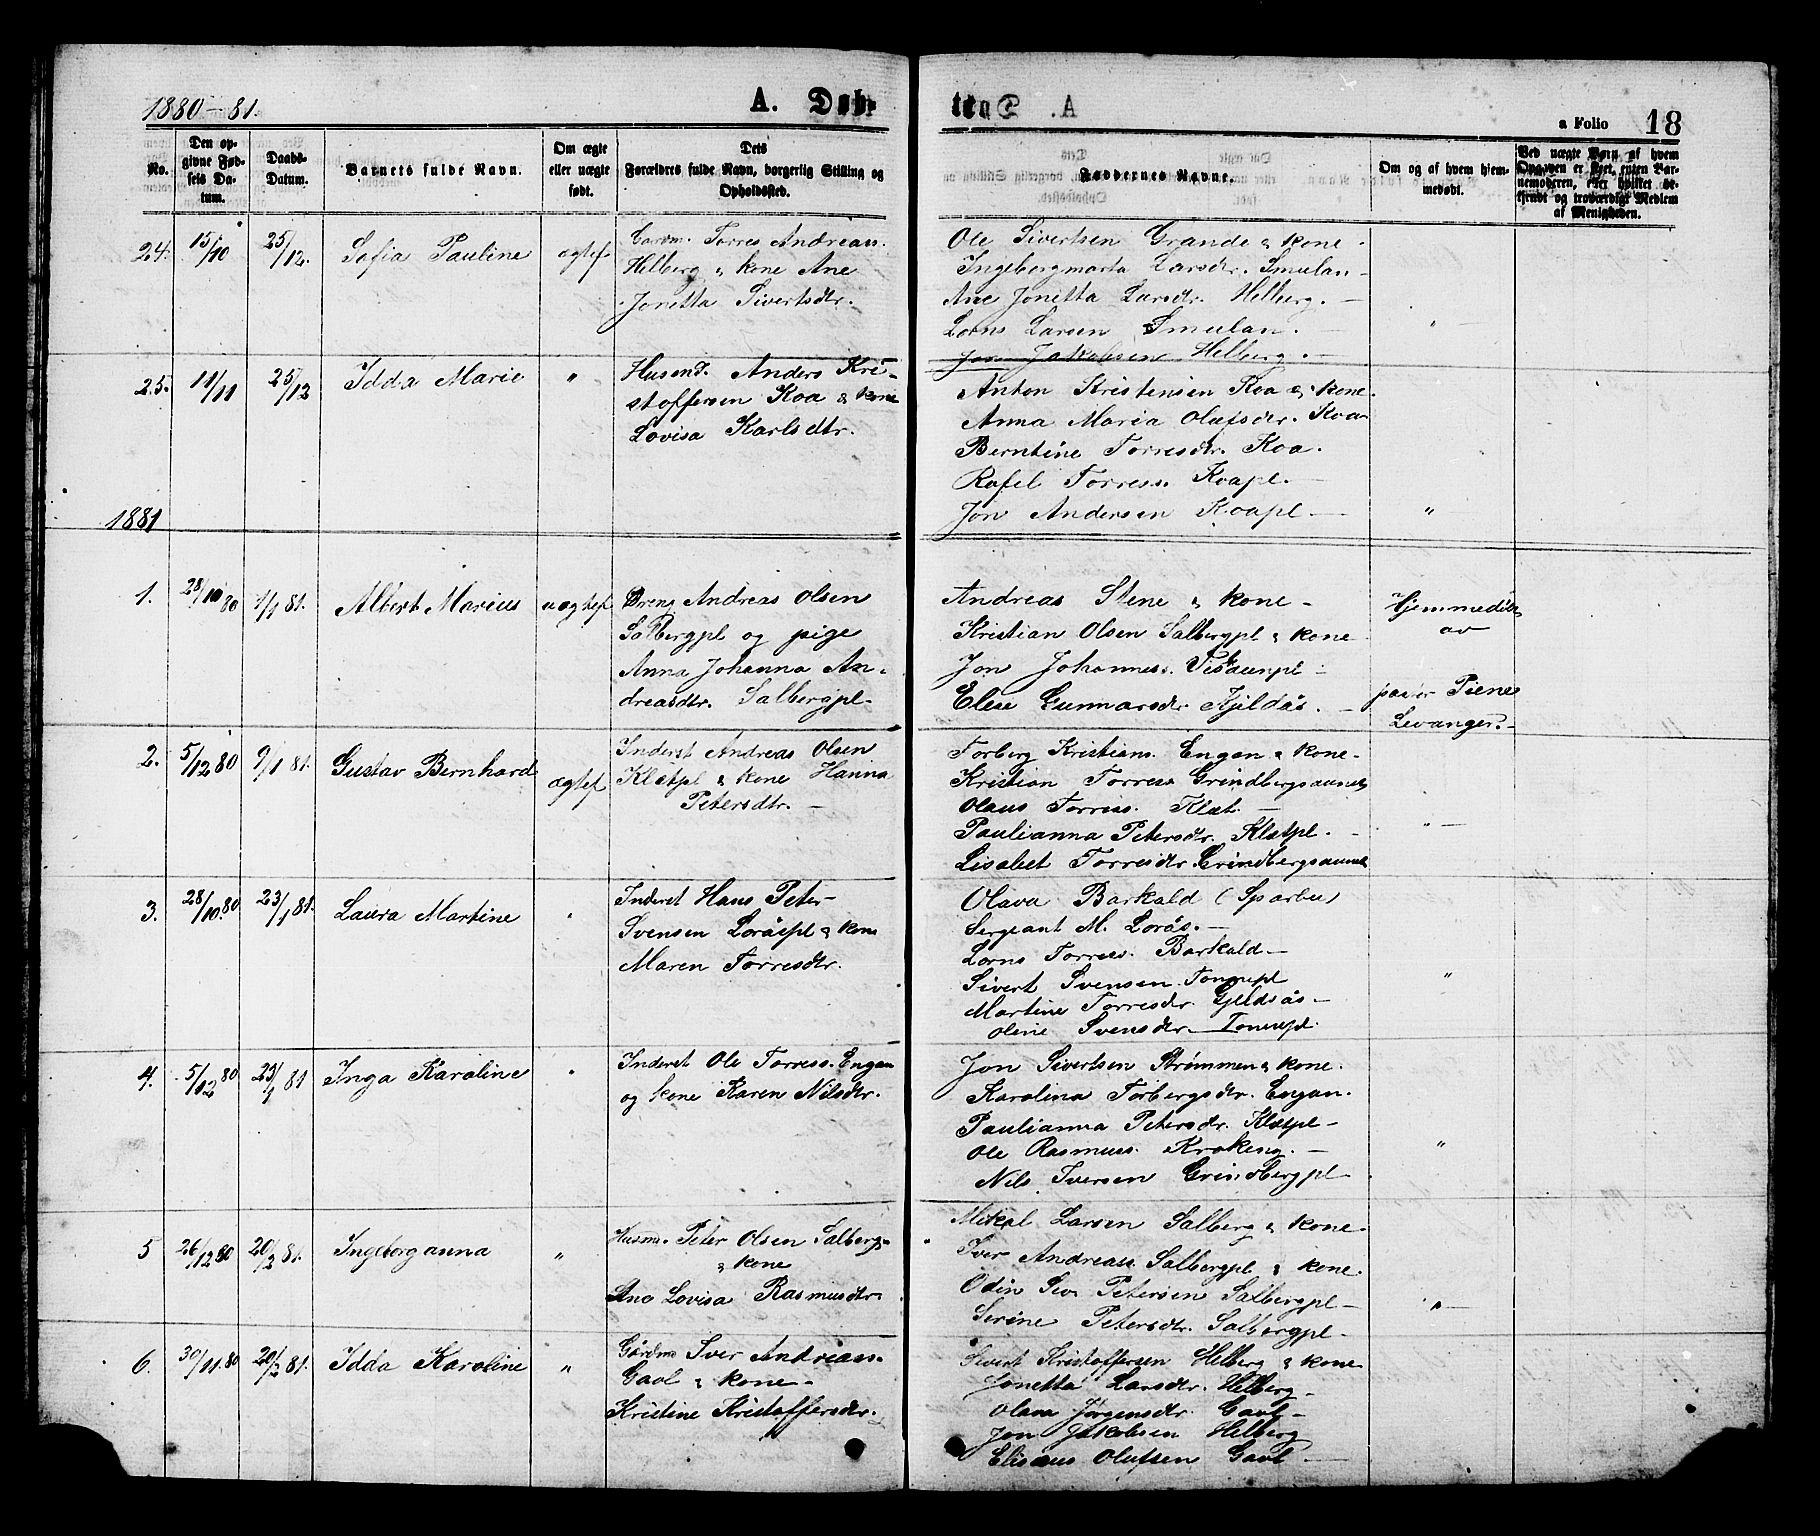 1880-81.
A. Døb-
a Folio 18
No.
Den opgivne Fødsels Datum.
Daabs-Datum.
Barnets fulde Navn.
Om ægte eller uægte født.
Dets Forældres fulde Navn, borgerlig Stilling og Opholdssted.
Faddernes Navne.
Om og af hvem hjemmedøbt.
Ved uægte Børn af hvem Opgaven er skeet, enten Barnemoderen, eller hvilket bekjendt og troværdigt Medlem af Menigheden.
24. 15/10 25/12. Sofia Pauline ægtef
Gardm. Torres Andreas.
Helberg & kone Ane
Jonetta Sivertsdtr.
Ole Sivertsen Grande & kone.
Ingebergmarta Larsdtr. Smulan -
Ane Jonetta Larsdtr. Helberg. -
Lorns Larsen Smulan. - "
Jon Jakobsen Helberg. -
25. 11/11 25/12 Idda Marie "
Husmd. Anders Kri-
stoffersen Koa & kone
Lovisa Karlsdtr.
Anton Kristensen Koa & kone.
Anna Maria Olufsdtr. Koa
Berntine Torresdtr. Koa.
Rafel Torress. Koapl. -
Jon Andersen Koapl - "
1881
1. 28/10 80 1/1 81. Albert Marius uægtef
Dreng Andreas Olsen
Salbergpl og pige
Anna Johanna An-
dreasdtr. Salbergpl.
Andreas Stene & kone -
Kristian Olsen Salbergpl & kone
Jon Johanness. Vistaunpl -
Elise Gunnarsdr. Kjeldås. -
Hjemmedøbt
av
Piene
Levanger. -
2. 5/12 80 9/1 81. Gustav Bernhard ægtef
Inderst Andreas Olsen
Klætpl & kone Hanna
Petersdtr. -
Torberg Kristians. Engan & kone -
Kristian Torress Grindbergsaunet
Olaus Torress. Klæt. -
Paulianna Petersdtr. Klætpl. - " -
Lisabet Torresdtr. Grindbergsaunet
3. 28/10. 80 23/1 81. Laura Martine "
Inderst Hans Peter-
Svensen Loråspl & kone
Maren Torresdtr.
Olava Barkald (Sparbu)
Sergeant M. Lorås. -
Lorns Torress. Barkald -
Sivert Svensen Tonnepl "
Martine Torresdr. Gjeldsås -
Oline Svensdtr. Tonnepl.
4. 5/12 80 23/1 81 Inga Karoline "
Inderst Ole Torress. Engan
og kone Karen Nilsdtr.
Jon Sivertsen Strømmen & kone.
Karolina Torbergsdtr. Engan.
Paulianna Petersdtr. Klætpl -
Ole Rasmuss. Krokeng. - "
Nils Iversen Grindbergpl -
5 26/12 80 20/2 81. Ingeborganna "
Husm. Peter Olsen Salberg-
& kone
Ane Lovisa Rasmusdtr.
Mikal Larsen Salberg & kone.
Iver Andreass. Salbergpl & kone.
Odin Siv. Petersen Salbergpl - " -
Serine Petersdtr. Salbergpl -
6. 30/11. 80 20/2 81. Idda Karoline "
Gårdm Iver Andreass.
Gavl & kone -
Kristine Kristoffersdtr.
Sivert Kristoffersen Helberg & kone
Jonetta Larsdtr. Helberg -
Olava Jørgensdtr. Gavl -
Jon Jakobsen Helberg
Elisæus Olufsen Gavl -